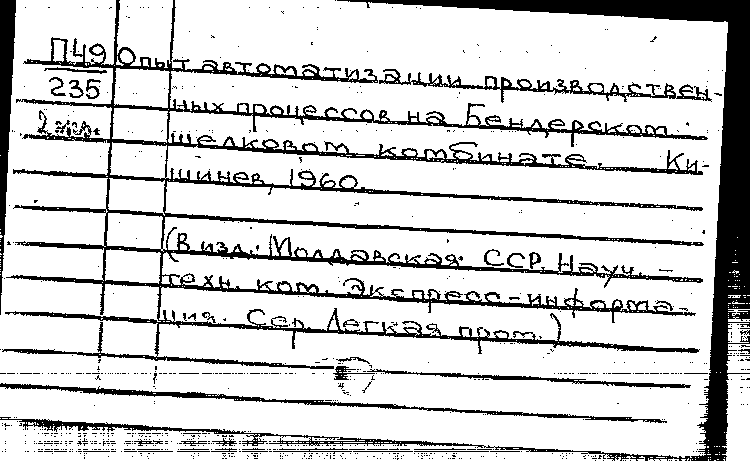 П49 Опыт автоматизации производствен-
235
ных процессов на Бендерском
2 экз.
шелковом комбинате. Ки-
шинев, 1960.
(В изд.: Молдавская ССР. Науч. -
техн. ком. Экспресс-информа-
ция. Сер. Легкая пром.)